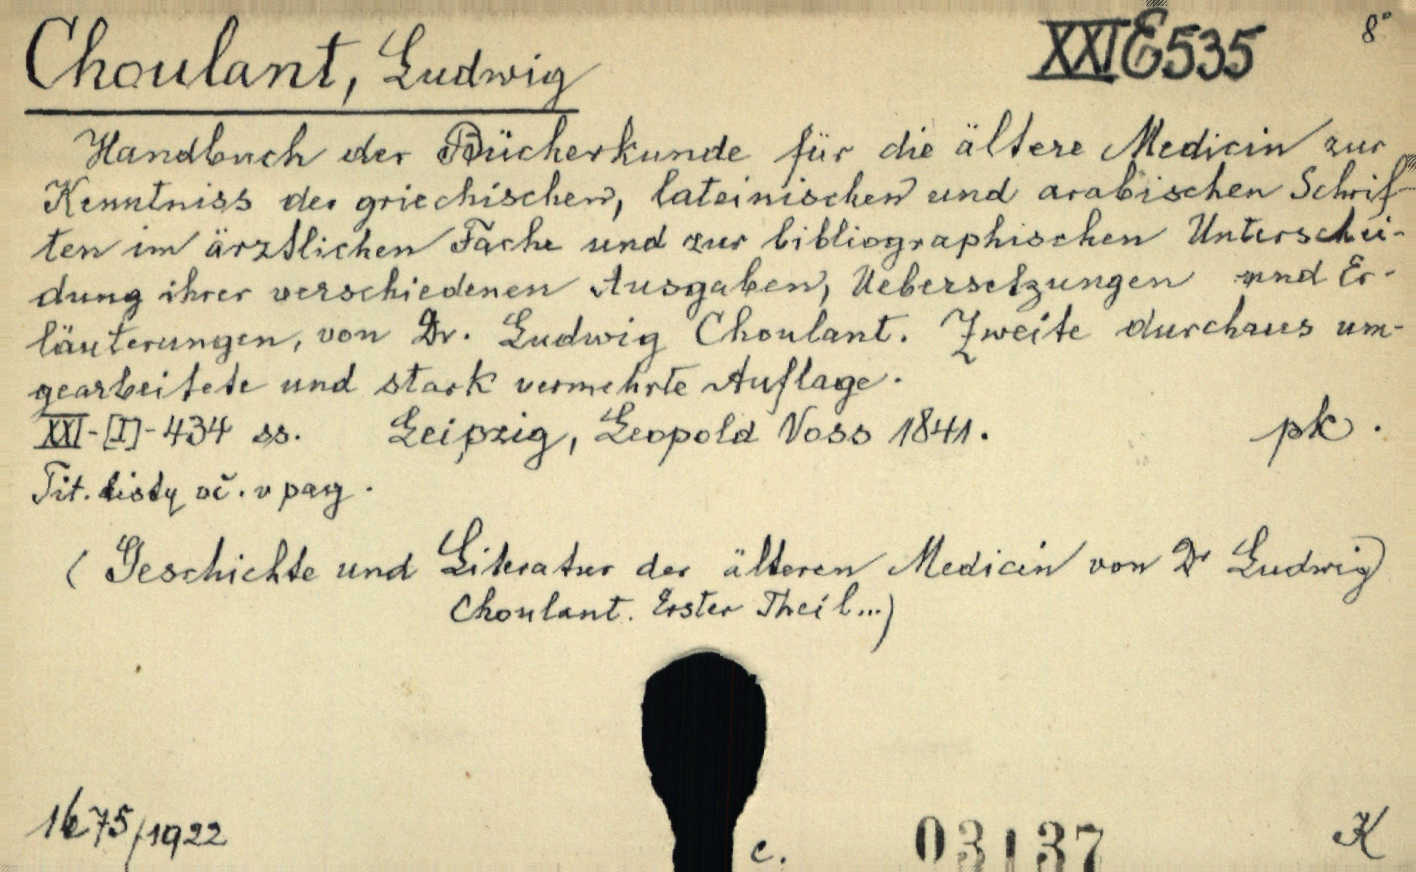 Choulant, Ludwig
XXI E 535
8°
Handbuch der Bücherkunde für die ältere Medicin zur
Kenntniss der griechischen, lateinischen und arabischen Schrif-
ten im ärztlichen Fache und zur bibliographischen Unterschei-
dung ihrer verschiedenen Ausgaben, Uebersetzungen und Er-
läuterungen, von Dr. Ludwig Choulant. Zweite durchaus um-
gearbeitete und stark vermehrte Auflage.
XXI-[I]-434 ss. Leipzig, Leopold Voss 1841. pk.
Tit. listy oč. v pag.
(Geschichte und Literatur der älteren Medicin von Dr Ludwig
Choulant. Erster Theil...)
/1922
c.
03137
K